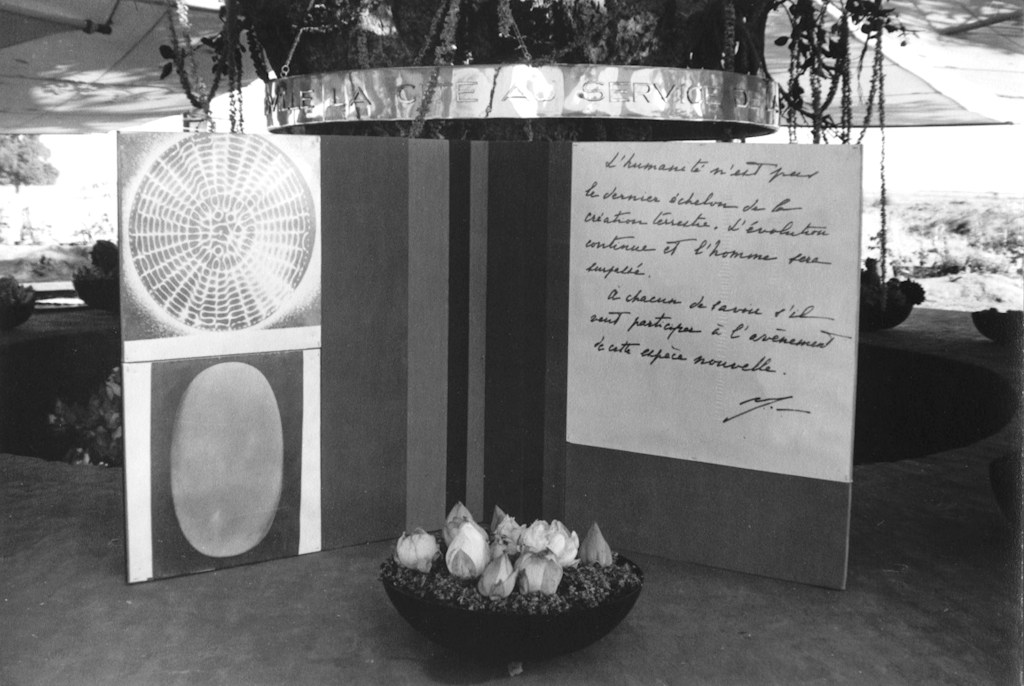 LA CITÉ AU SERVICE DE
L'humanité n'est pas
le dernier échelon de la
création terrestre. L'évolution
continue et l'homme sera
surpassé.
à chacun de savoir s'il
veut participer à l'avènement
de cette espèce nouvelle.